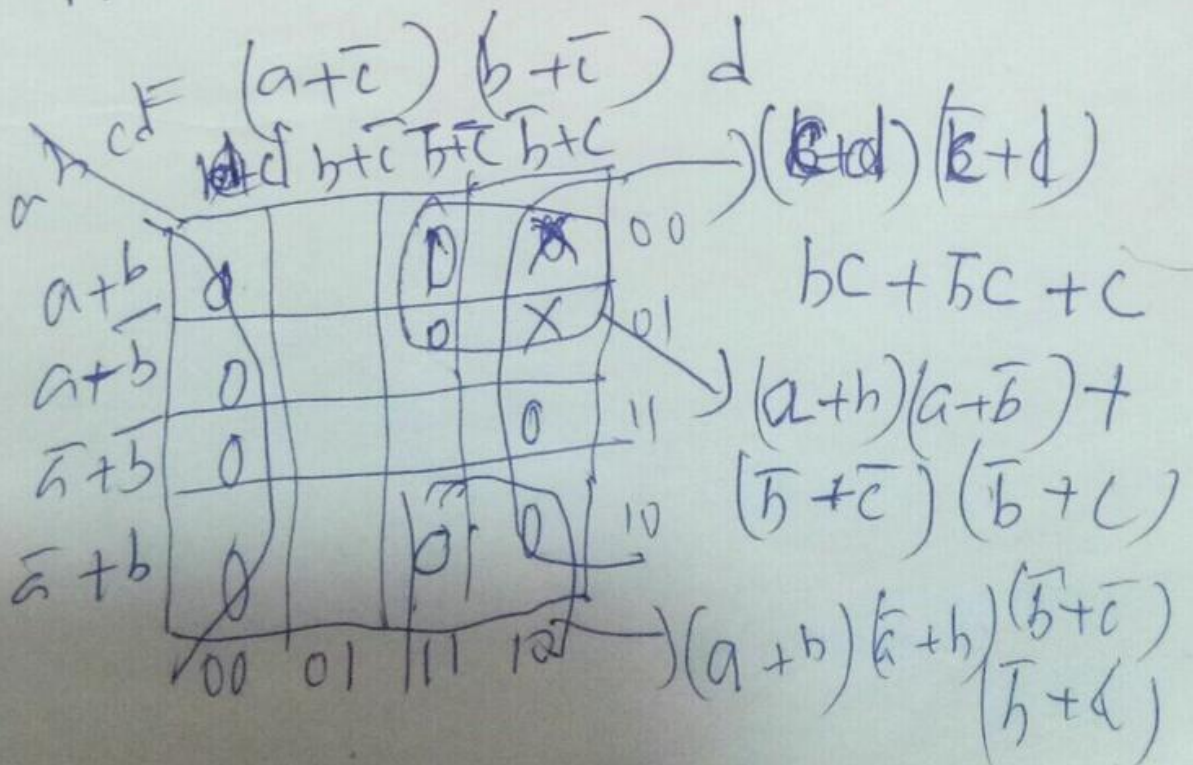 F = (a+c̅) (b+c̅) d
ab cd c+d b+c̅ b̅+c̅ b̅+c
a+b 0 0 X 00
a+b̅ 0 0 X 01
a̅+b̅ 0 0 11
a̅+b 0 0 0 10
00 01 11 10
(c+d)(c̅+d)
bc + b̅c + c
(a+b)(a+b̅) +
(b̅+c̅)(b̅+c)
(a+b)(a̅+b)(b̅+c̅)
(b̅+d)